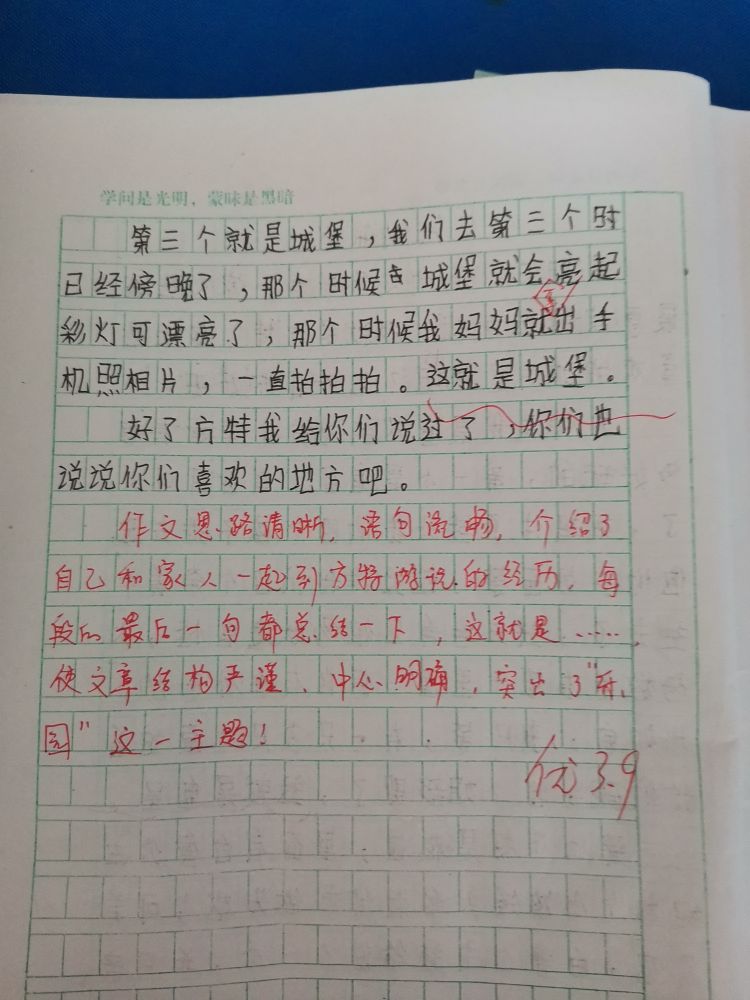 学问是光明，蒙昧是黑暗
第三个就是城堡，我们去第三个时
已经傍晚了，那个时候 城堡就会亮起
彩灯可漂亮了，那个时候我妈妈就出手
机照相片，一直拍拍拍。这就是城堡。
好了方特我给你们说过了，你们也
说说你们喜欢的地方吧。
作文思路清晰，语句流畅，介绍了
自己和家人一起到方特游玩的经历，每
段的最后一句都总结一下，这就是……，
使文章结构严谨、中心明确，突出了“乐
园”这一主题！
优 3.9